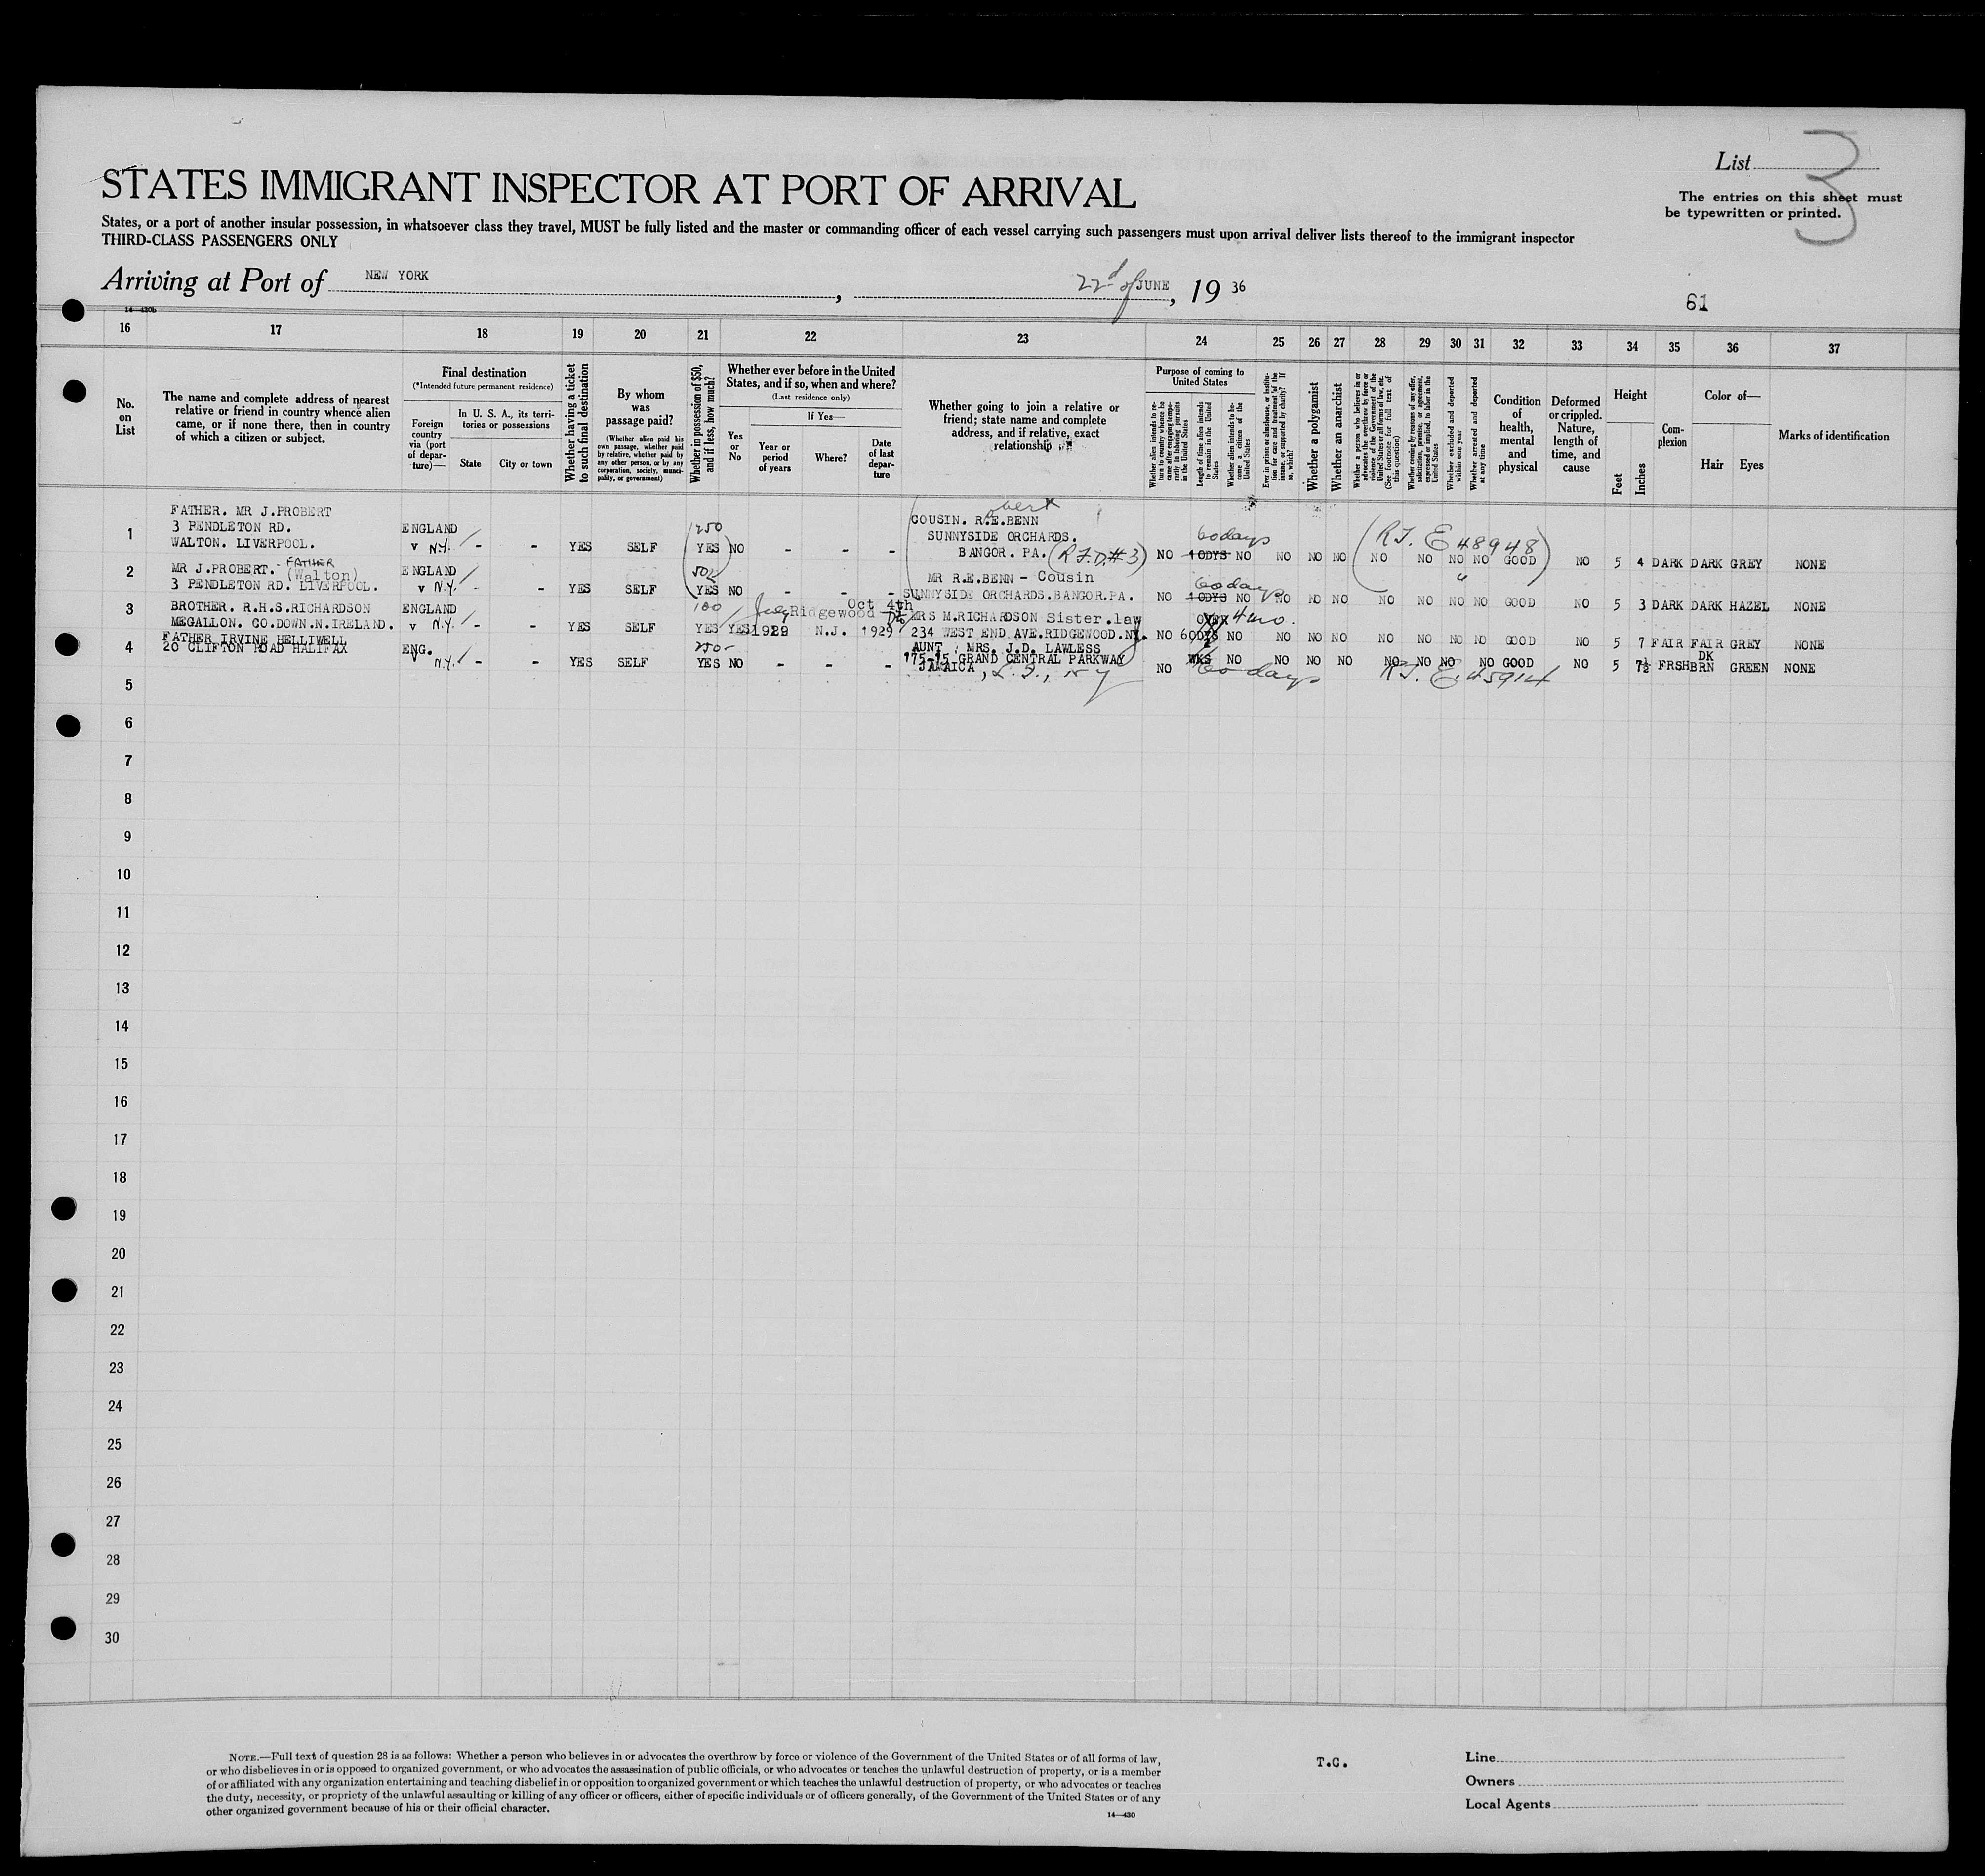 List 3
STATES IMMIGRANT INSPECTOR AT PORT OF ARRIVAL
The entries on this sheet must
be typewritten or printed.
States, or a port of another insular possession, in whatsoever class they travel, MUST be fully listed and the master or commanding officer of each vessel carrying such passengers must upon arrival deliver lists thereof to the immigrant inspector
THIRD-CLASS PASSENGERS ONLY
Arriving at Port of NEW YORK, 22d of JUNE, 19 36
61
14—430b
16 17 18 19 20 21 22 23 24 25 26 27 28 29 30 31 32 33 34 35 36 37
No.
on
List
The name and complete address of nearest
relative or friend in country whence alien
came, or if none there, then in country
of which a citizen or subject.
Final destination
(*Intended future permanent residence)
Foreign
country
via (port
of depar-
ture)—
In U. S. A., its terri-
tories or possessions
State
City or town
Whether having a ticket
to such final destination
By whom
was
passage paid?
(Whether alien paid his
own passage, whether paid
by relative, whether paid by
any other person, or by any
corporation, society, munici-
pality, or government)
Whether in possession of $50,
and if less, how much?
Whether ever before in the United
States, and if so, when and where?
(Last residence only)
Yes
or
No
If Yes—
Year or
period
of years
Where?
Date
of last
depar-
ture
Whether going to join a relative or
friend; state name and complete
address, and if relative, exact
relationship
Purpose of coming to
United States
Whether alien intends to re-
turn to country whence he
came after engaging tempo-
rarily in laboring pursuits
in the United States
Length of time alien intends
to remain in the United
States
Whether alien intends to be-
come a citizen of the
United States
Ever in prison or almshouse, or institu-
tion for care and treatment of the
insane, or supported by charity? If
so, which?
Whether a polygamist
Whether an anarchist
Whether a person who believes in or
advocates the overthrow by force or
violence of the Government of the
United States or all forms of law, etc.
(See footnote for full text of
this question)
Whether coming by reasons of any offer,
solicitation, promise, or agreement,
expressed or implied, to labor in the
United States
Whether excluded and deported
within one year
Whether arrested and deported
at any time
Condition
of
health,
mental
and
physical
Deformed
or crippled.
Nature,
length of
time, and
cause
Height
Feet
Inches
Com-
plexion
Color of—
Hair
Eyes
Marks of identification
1
FATHER. MR J.PROBERT
3 PENDLETON RD.
WALTON. LIVERPOOL.
ENGLAND
v N.Y. - - YES SELF YES NO - - -
250
obert
COUSIN. R.E.BENN
SUNNYSIDE ORCHARDS.
BANGOR. PA. (R.F.D.#3)
60 days
NO 10DYS NO NO NO NO NO NO NO NO GOOD NO 5 4 DARK DARK GREY NONE
(R.T. E 48948)
2
MR J.PROBERT. - FATHER
(Walton)
3 PENDLETON RD. LIVERPOOL.
ENGLAND
v N.Y. - - YES SELF YES NO - - -
MR R.E.BENN - Cousin
SUNNYSIDE ORCHARDS.BANGOR.PA.
60 days
NO 10DYS NO NO NO NO NO NO NO NO GOOD NO 5 3 DARK DARK HAZEL NONE
3
BROTHER. R.H.S.RICHARDSON
MEGALLON. CO.DOWN.N.IRELAND.
ENGLAND
v N.Y. - - YES SELF YES YES
100
July 1929 Ridgewood N.J. Oct 4th 1929
MRS M.RICHARDSON Sister.law
234 WEST END AVE.RIDGEWOOD.NJ.
OVER 4 mo.
NO 60DYS NO NO NO NO NO NO NO NO GOOD NO 5 7 FAIR FAIR GREY NONE
4
FATHER IRVINE HELLIWELL
20 CLIFTON ROAD HALIFAX
ENG.
v N.Y. - - YES SELF YES NO - - -
250-
AUNT, MRS. J.D. LAWLESS
175-15 GRAND CENTRAL PARKWAY
JAMAICA, L.I., NY
NO WKS NO NO NO NO NO NO NO NO GOOD NO 5 7½ FRSH DK BRN GREEN NONE
60 days R.T. E.45914
5
6
7
8
9
10
11
12
13
14
15
16
17
18
19
20
21
22
23
24
25
26
27
28
29
30
NOTE.—Full text of question 28 is as follows: Whether a person who believes in or advocates the overthrow by force or violence of the Government of the United States or of all forms of law,
or who disbelieves in or is opposed to organized government, or who advocates the assassination of public officials, or who advocates or teaches the unlawful destruction of property, or is a member
of or affiliated with any organization entertaining and teaching disbelief in or opposition to organized government or which teaches the unlawful destruction of property, or who advocates or teaches
the duty, necessity, or propriety of the unlawful assaulting or killing of any officer or officers, either of specific individuals or of officers generally, of the Government of the United States or of any
other organized government because of his or their official character.
14—430
T.C.
Line
Owners
Local Agents